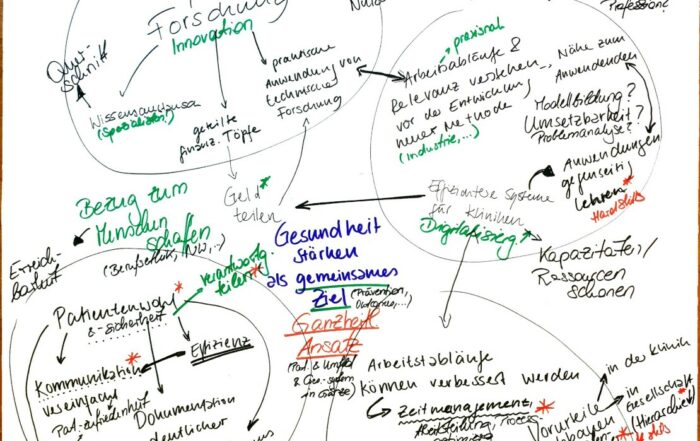 Forschung
Innovation
Quer-
schnitt
(Spezialisten!)
geteilte
finanz. Töpfe
praktische
Anwendung von
technischer
Forschung
Geld
teilen
praxisnah
Arbeitsabläufe &
Relevanz verstehen
vor der Entwicklung
neuer Methode
(Industrie,...)
Nähe zum
Anwendenden
Modellbildung?
Umsetzbarkeit?
Problemanalyse?
Anwendungen
gegenseitig
lehren
Hardskills
Effizientere Systeme
für Kliniken
Digitalisierg?
Kapazitäten/
Ressourcen
schonen
Bezug zum
Menschen
schaffen
Erreich-
barkeit
verantwortg.
teilen
Gesundheit
stärken
als gemeinsames
Ziel (Prävention,
Ganzheitl.
Ansatz
Patientenwohl
& -sicherheit
Effizienz
Kommunikation
vereinfacht
Pat.zufriedenheit
Dokumentation
Arbeitsabläufe
können verbessert werden
Zeitmanagement
Arbeitsteilung, Prozess
Vorurteile
in der Klinik
in
Gesellschaft